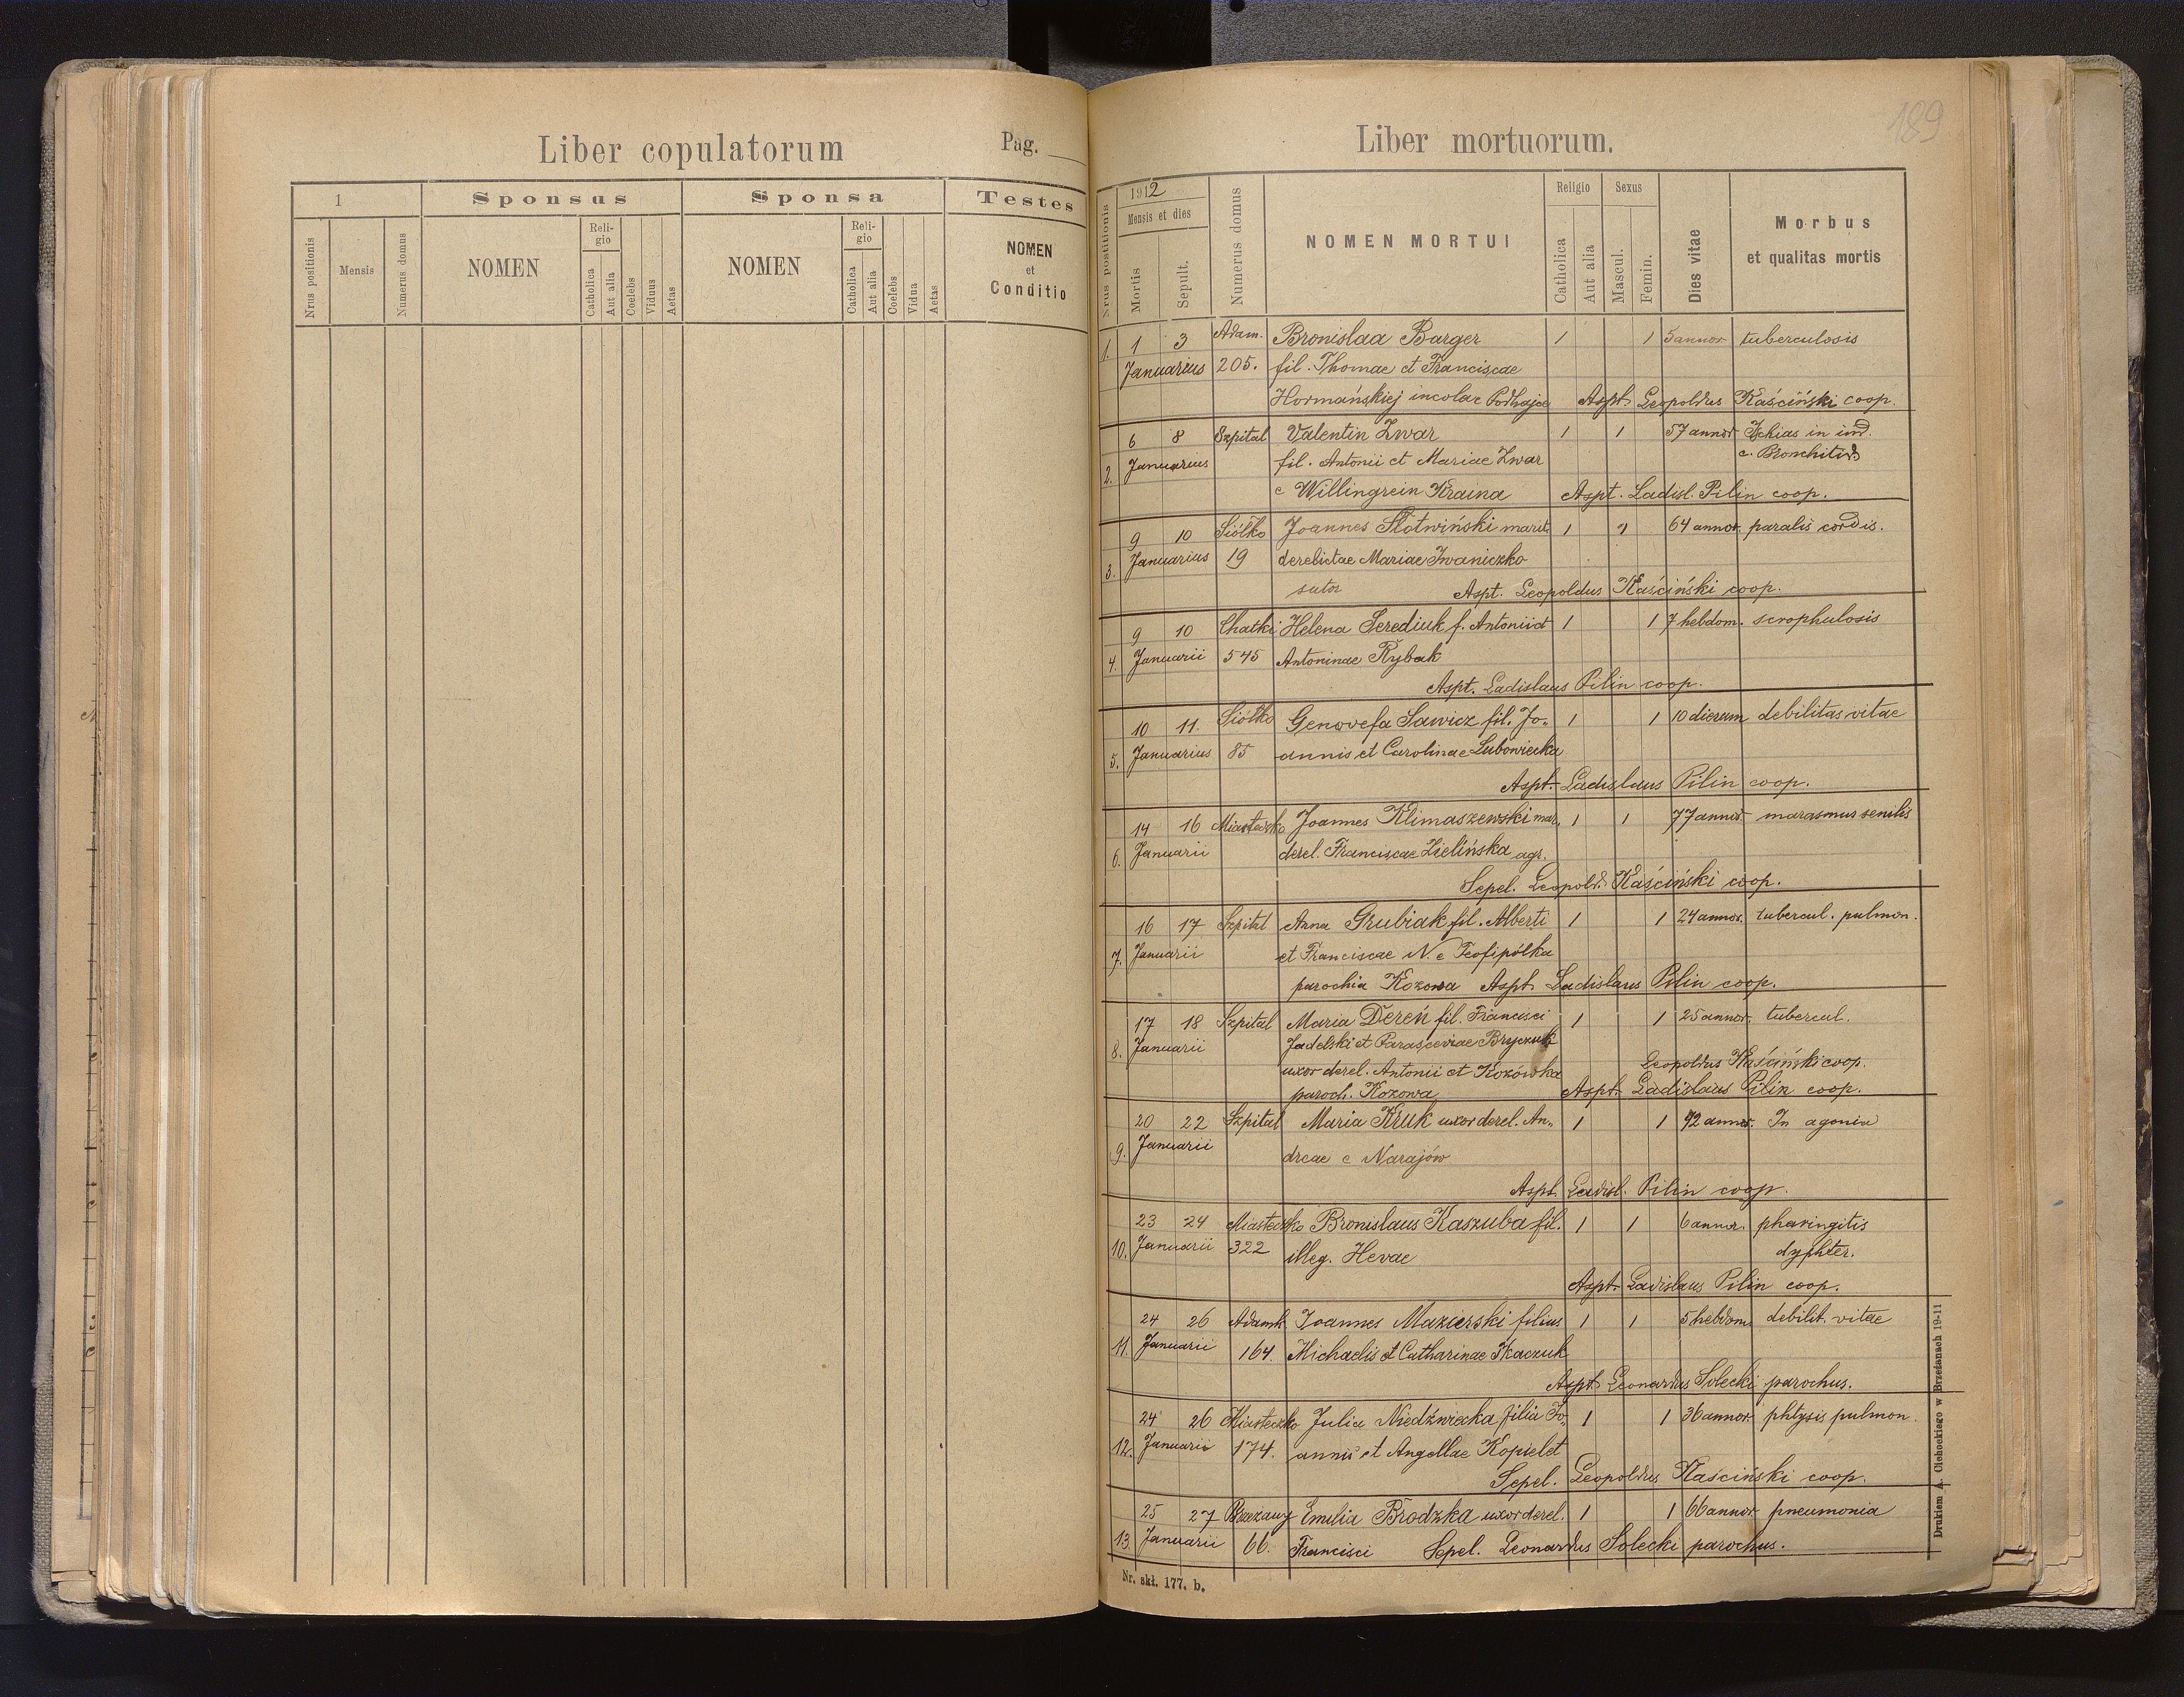 Liber copulatorum
Pag.
1
Sponsus
Sponsa
Testes
Nrus positionis
Mensis
Numerus domus
NOMEN
Reli-
gio
Catholica
Aut alia
Coelebs
Viduus
Aetas
NOMEN
Reli-
gio
Catholica
Aut alia
Coelebs
Vidua
Aetas
NOMEN
et
Conditio
189
Liber mortuorum.
Nrus postitionis
1912
Mensis et dies
Mortis
Sepult.
Numerus domus
NOMEN MORTUI
Religio
Catholica
Aut alia
Sexus
Mascul.
Femin.
Dies vitae
Morbus
et qualitas mortis
1. 1 3 Adam. Bronislaa Barger 1 1 5 annor tuberculosis
Januarius 205. fil. Thomae et Franciscae
Hormańskiej incolae Podhajce Aspt. Leopoldus Kaściński coop.
6 8 Szpital Valentin Zwar 1 1 57 annor Ischias in ind.
2. Januarius fil. Antonii et Mariae Zwar c. Bronchitids
e Willingrein Kraina Aspt. Ladisl. Pilin coop.
9 10 Siółko Joannes Słotwiński marit. 1 1 64 annor. paralis cordis.
3. Januarius 19 derelictae Mariae Iwaniczko
sutor Aspt. Leopoldus Kaściński coop.
9 10 Chatki Helena Serediuk f. Antonii et 1 1 7 hebdom. scrophulosis
4. Januarii 545 Antoninae Rybak
Aspt. Ladislaus Pilin coop.
10 11. Siółko Genovefa Sawicz fil. Jo- 1 1 10 dierum debilitas vitae
5. Januarius 85 annis et Carolinae Lubowiecka
Aspt. Ladislaus Pilin coop.
14 16 Miasteczko Joannes Klimaszewski mar. 1 1 77 annor. marasmus senilis
6. Januarii derel. Franciscae Zielińska agr.
Sepel. Leopold. Kaściński coop.
16 17 Szpital Anna Grubiak fil. Alberti 1 1 24 annor. tubercul. pulmon.
7. Januarii et Franciscae N. e Teofipólka
parochia Kozowa Aspt. Ladislaus Pilin coop.
17 18 Szpital Maria Dereń fil. Francisci 1 1 25 annor. tubercul.
8. Januarii Jadelski et Parasceviae Bryczuk
uxor derel. Antonii et Kozówka Leopoldus Kaściński coop.
paroch. Kozowa Aspt. Ladislaus Pilin coop.
20 22 Szpital Maria Kruk uxor derel. An- 1 1 42 annor. In agonia
9. Januarii dreae e Narajów
Aspt. Ladisl. Pilin coop.
23 24 Miasteczko Bronislaus Kaszuba fil. 1 1 6 annor. pharingitis
10. Januarii 322 illeg. Hevae dyphter.
Aspt. Ladislaus Pilin coop.
24 26 Adamk Joannes Mazierski filius 1 1 5 hebdom. debilit. vitae
11. Januarii 164. Michaelis et Catharinae Tkaczuk
Aspt. Leonardus Solecki parochus.
24 26 Miasteczko Julia Niedźwiecka filia Jo- 1 1 36 annor. phtysis pulmon.
12. Januarii 174. annis et Angellae Kopielet
Sepel. Leopoldus Kaściński coop.
25 27 Brzeżany Emilia Brodzka uxor derel. 1 1 66 annor. pneumonia
13. Januarii 66. Francisci Sepel. Leonardus Solecki parochus.
Nr. skł. 177. b.
Drukiem A. Cichockiego w Brzeżanach 19-11